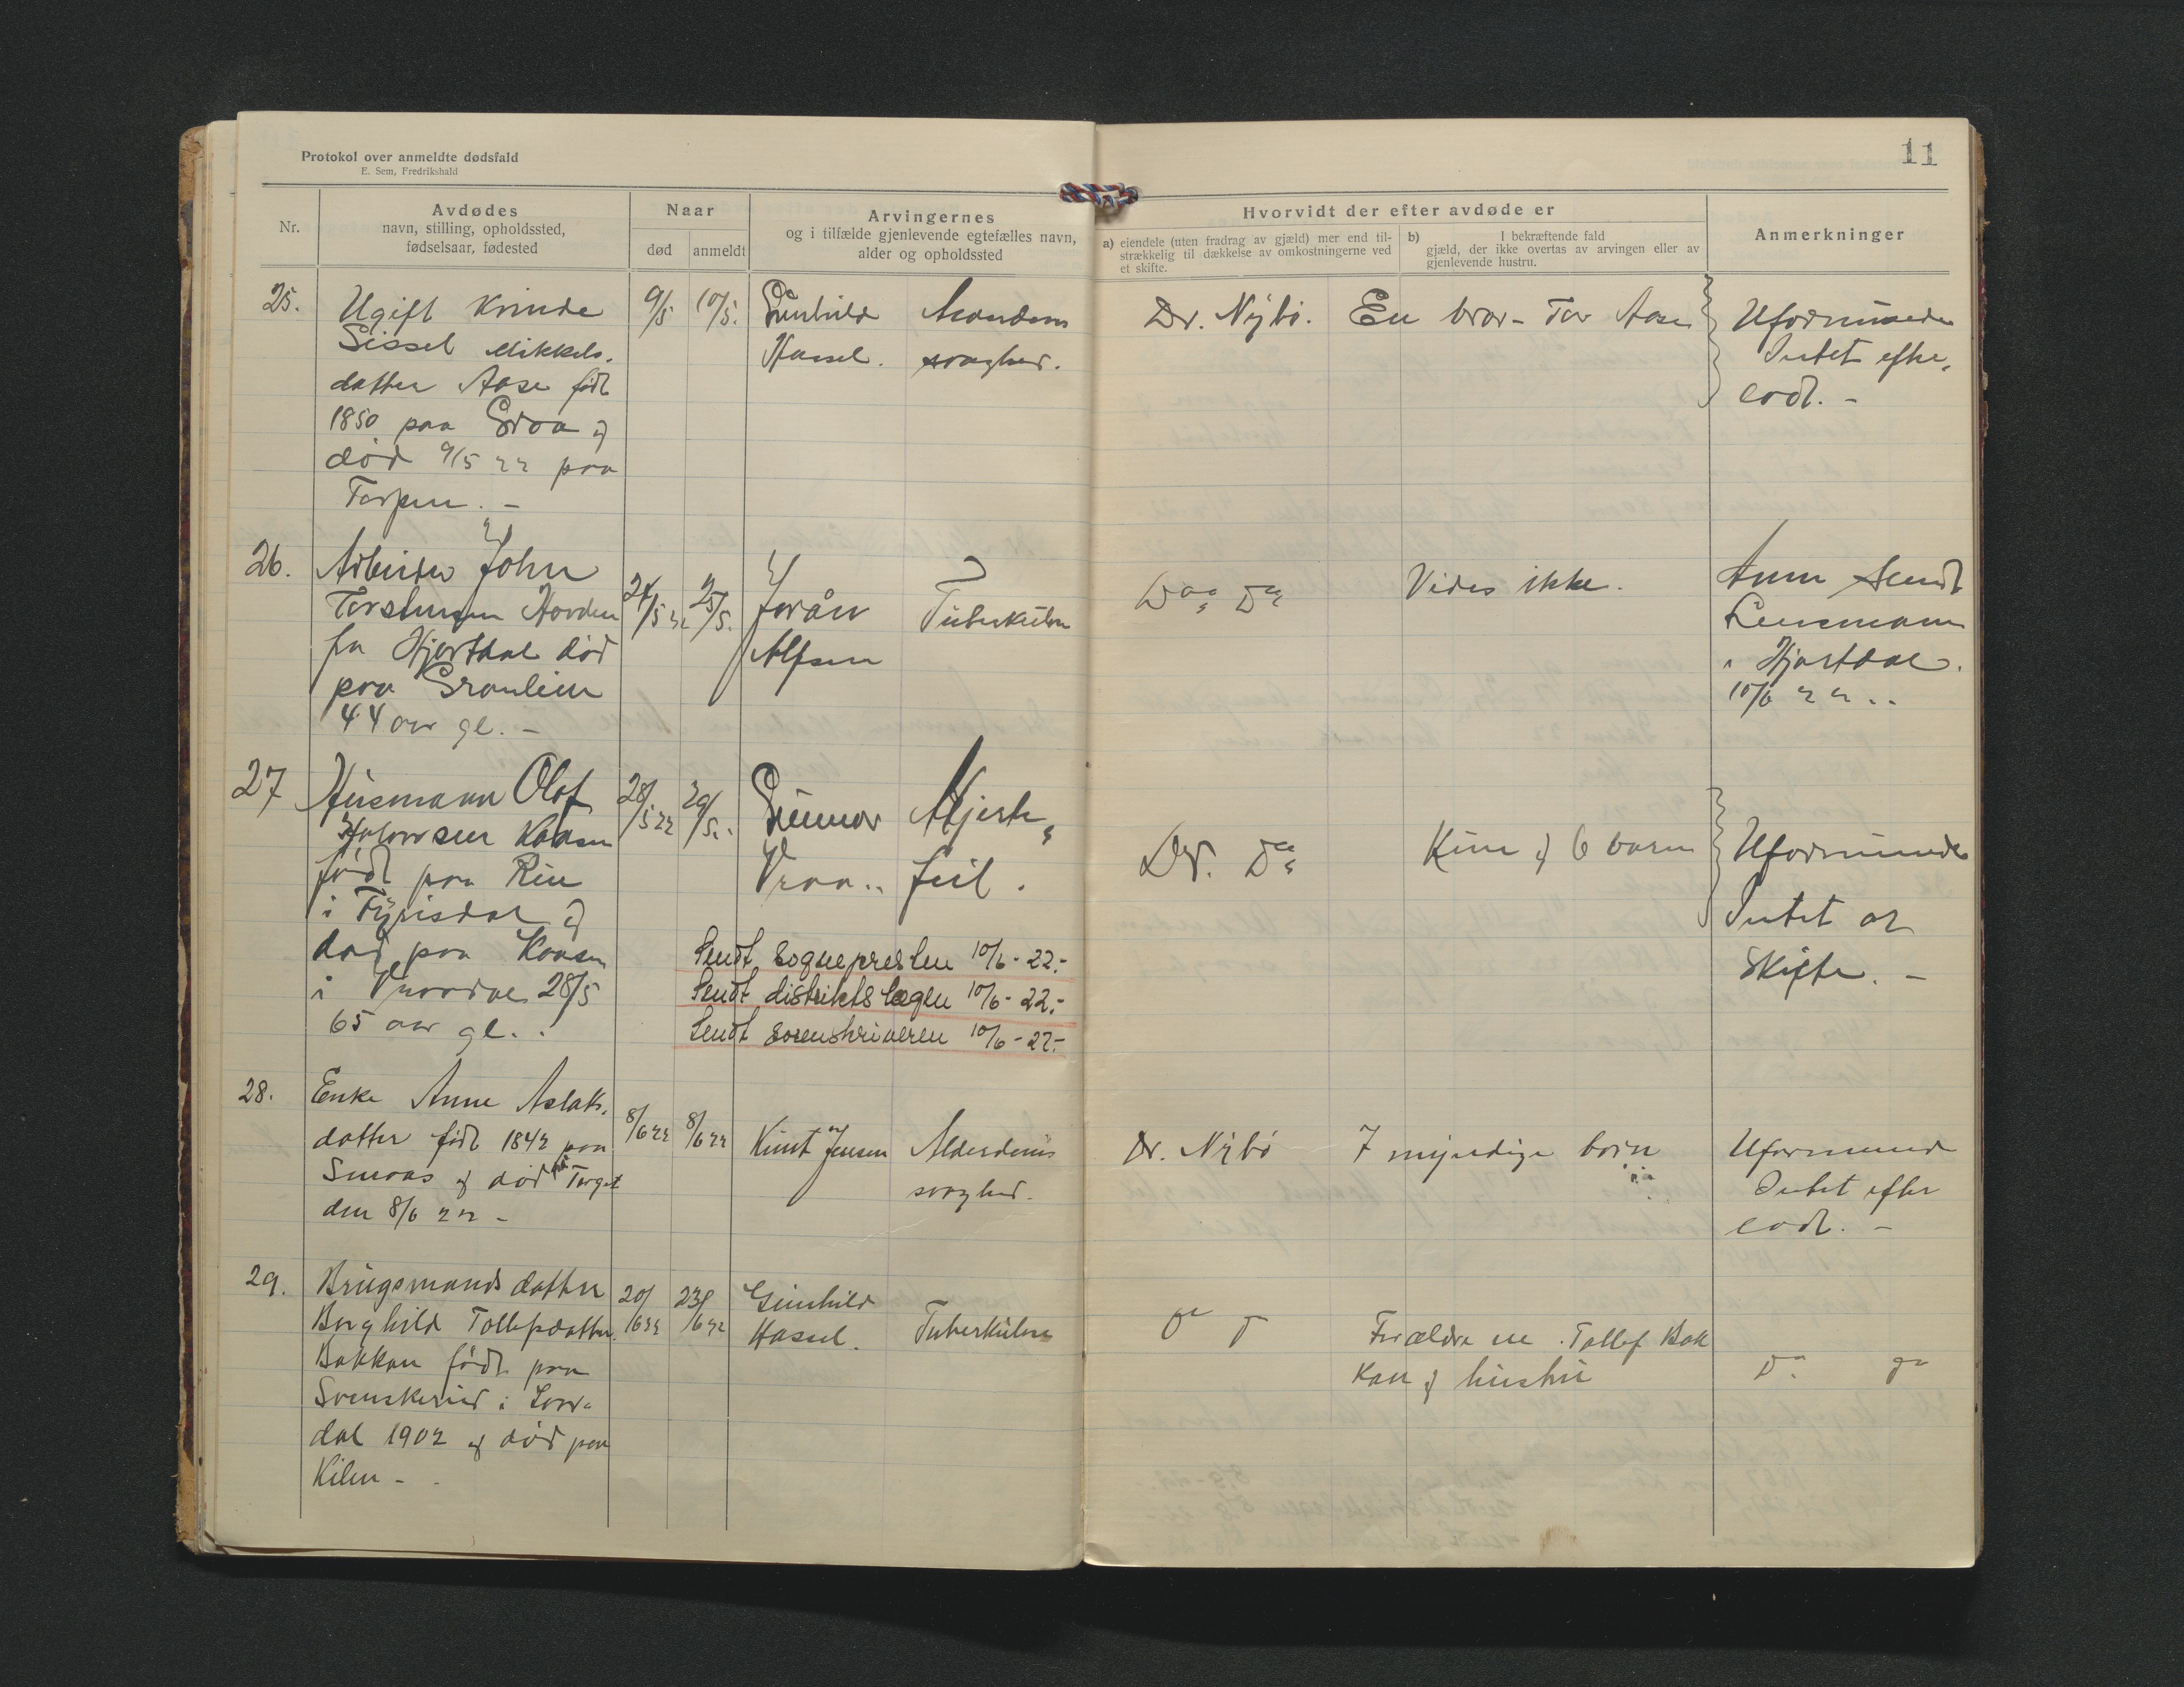 Protokol over anmeldte dødsfald
E. Sem, Fredrikshald
11
Nr.
Avdødes
navn, stilling, opholdssted,
fødselsaar, fødested
Naar
død
anmeldt
Arvingernes
og i tilfælde gjenlevende egtefælles navn,
alder og opholdssted
Hvorvidt der efter avdøde er
a) eiendele (uten fradrag av gjæld) mer end til-
strækkelig til dækkelse av omkostningerne ved
et skifte.
b) I bekræftende fald
gjæld, der ikke overtas av arvingen eller av
gjenlevende hustru.
Anmerkninger
25.
Ugift Kvinde
Sissel Mikkels-
datter Aase født
1850 paa Groa og
død 9/5 22 paa
9/5
10/5.
Gunhild
Hassel.
svaghed.
Dr. Nybø.
En bror - Tor Aase
Uformuende
Intet efter
ladt. -
26.
Arbeider John
fra Hjartdal død
paa Graulien
44 aar gl. -
24/5 22
25/5.
Jorån
Alfsen
Tuberkulose
Do Do
Vides ikke.
Anm Sendt
Lensmann
i Hjartdal.
10/6 22..
27
Husmann Olaf
Halvorsen Kaasen
født paa Rui
i Fyrisdal og
død paa Kaasen
i Vraadal 28/5
65 aar gl..
28/5 22
29/5.
Gunnar
Vraa..
Hjerte
feil.
Dr. Do
Kone og 6 barn
Uformuende
Intet at
Skifte. -
Sendt sognepresten 10/6 - 22.-
Sendt distriktslægen 10/6 - 22.-
Sendt sorenskriveren 10/6 - 22.-
28.
Enke Anne Aslaks-
datter født 1842 paa
Smoas og død paa Torget
den 8/6 22 -
8/6 22
8/6 22
Knut Jensen
Alderdoms
svaghed.
Dr. Nybø
7 myndige børn
Uformuende
Intet efter
ladt. -
29.
Brugsmands datter
Borghild Tollefsdatter
Bakkan født paa
Svenskerud i Laar-
dal 1902 og død paa
Kilen -
20/6 22
23/6 22
Gunhild
Hassel.
Tuberkulose
Do Do
Forældrene. Tollef Bak
kan og hustru
Do. Do